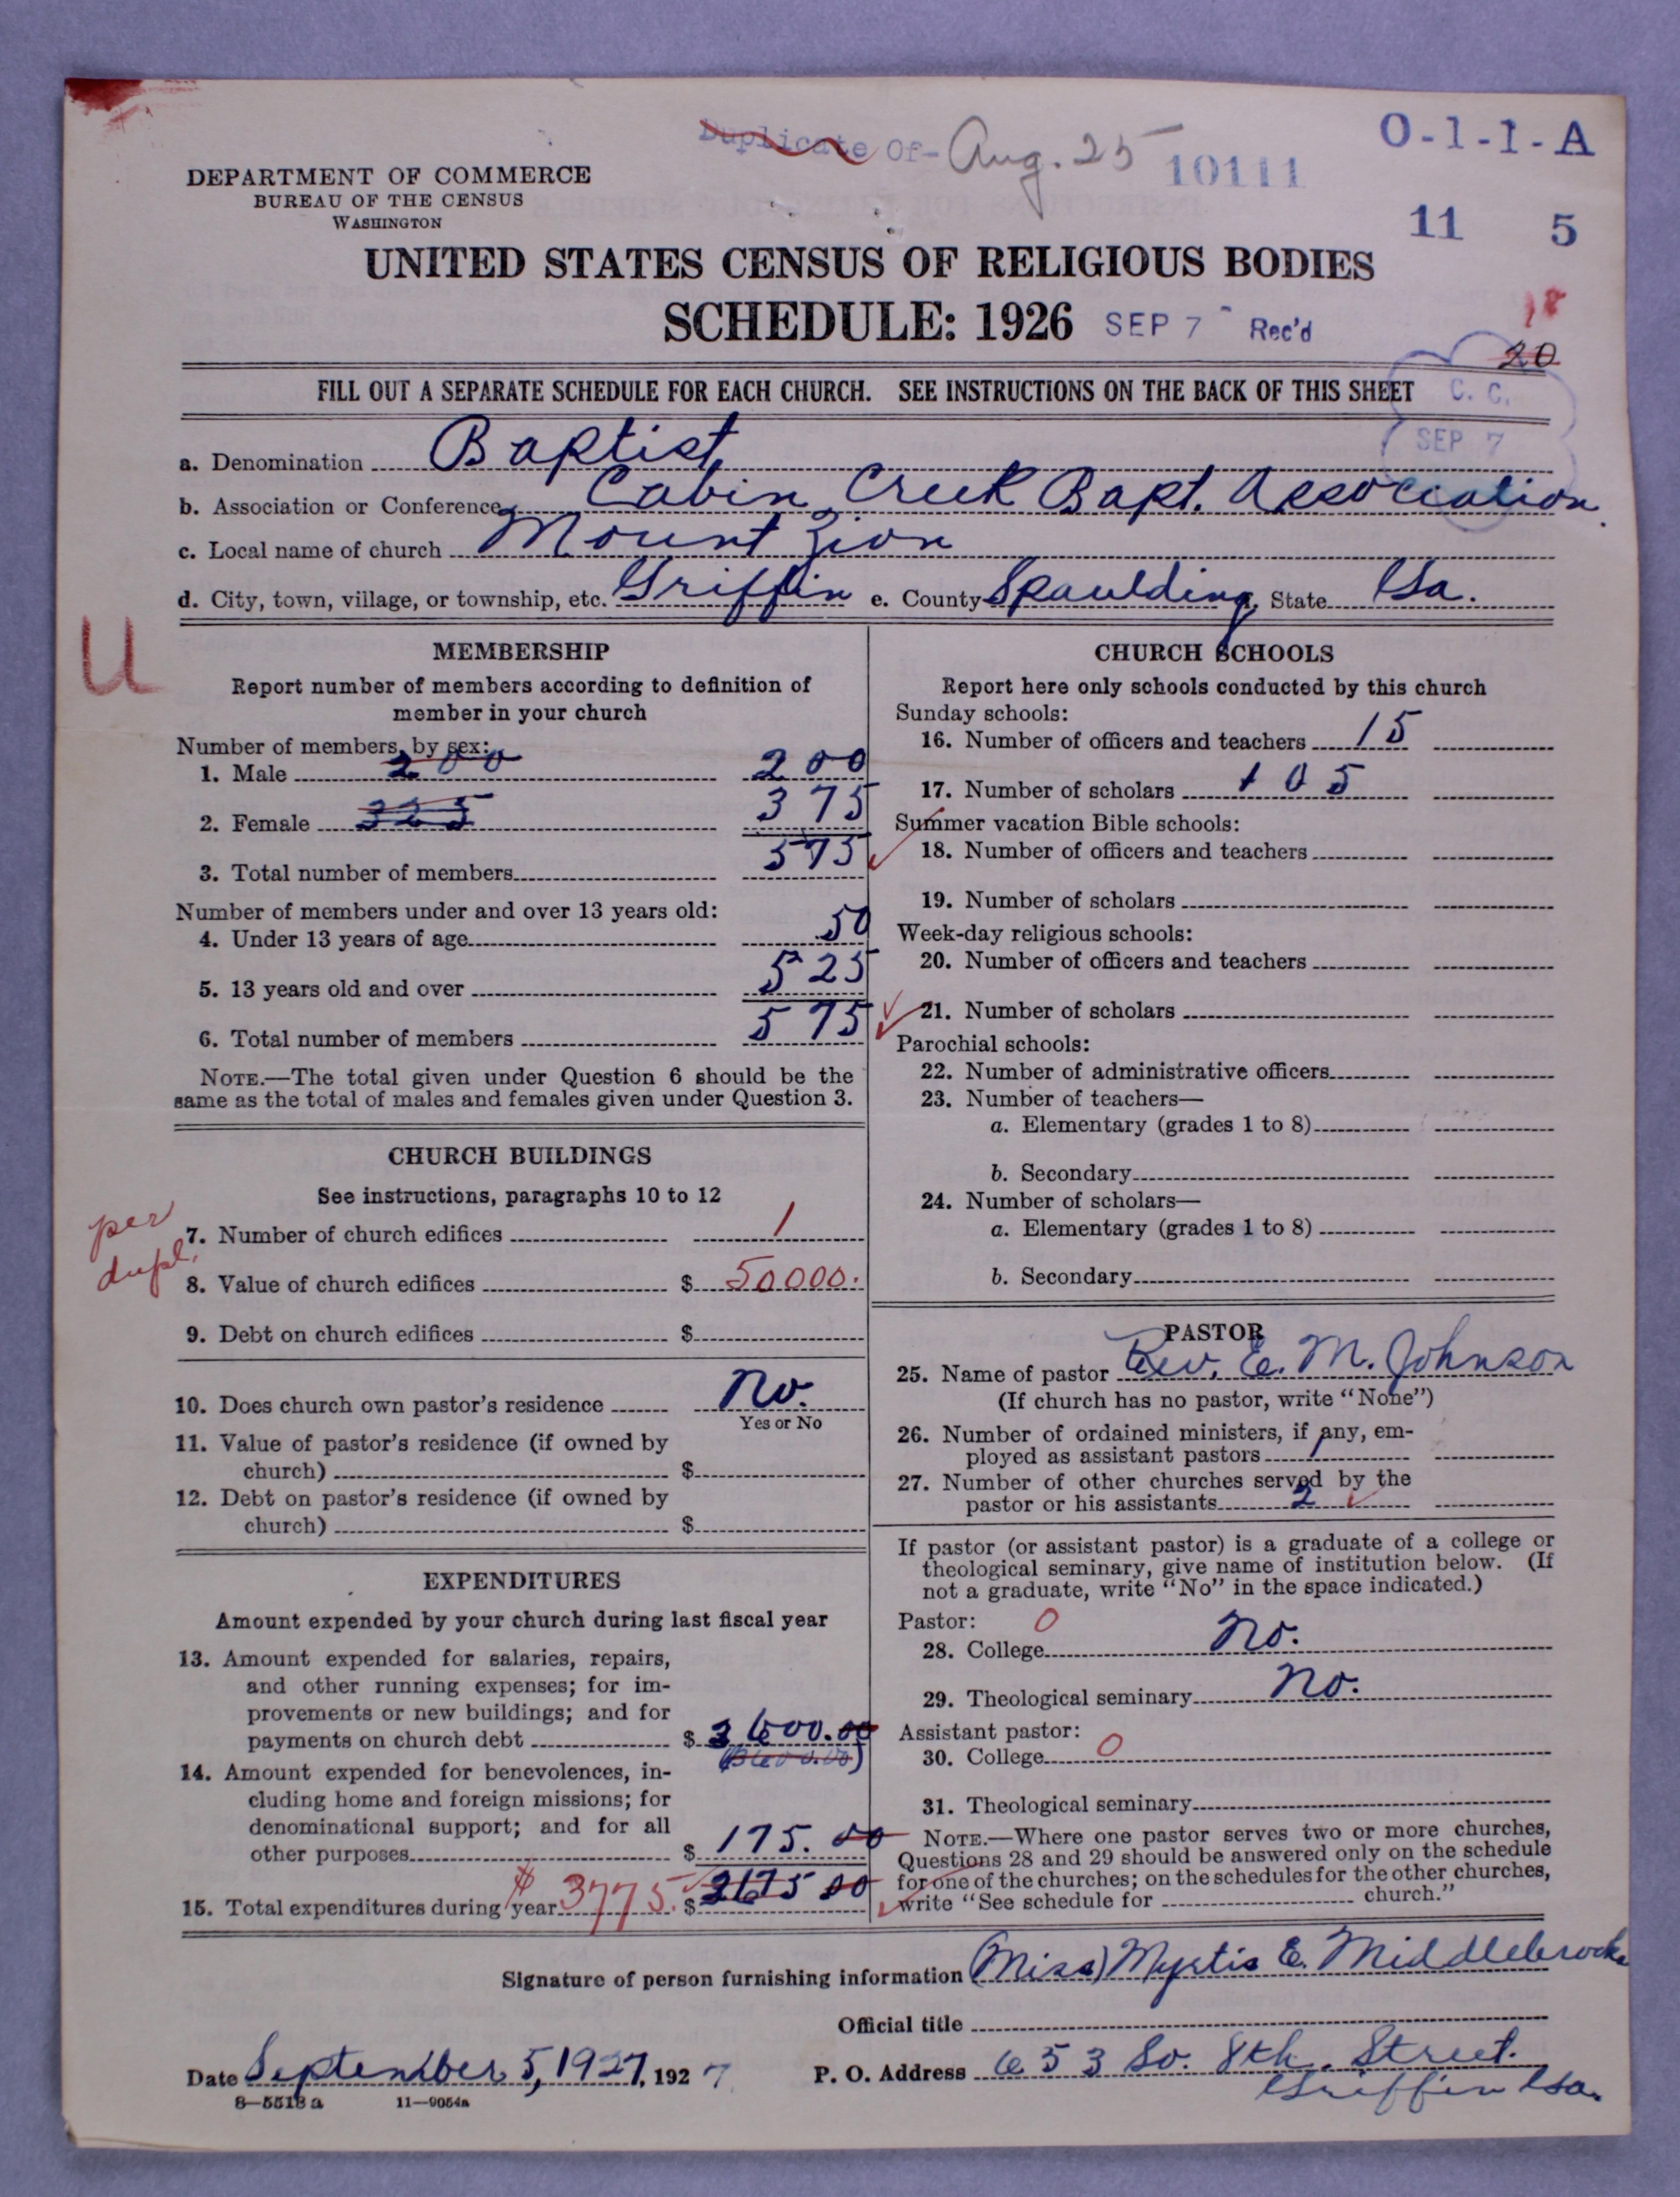 Duplicate Of- Aug. 25 10111
O-1-1-A
11 5
DEPARTMENT OF COMMERCE
BUREAU OF THE CENSUS
WASHINGTON
UNITED STATES CENSUS OF RELIGIOUS BODIES
SCHEDULE: 1926 SEP 7 Rec'd
18
20
FILL OUT A SEPARATE SCHEDULE FOR EACH CHURCH. SEE INSTRUCTIONS ON THE BACK OF THIS SHEET
C. C.
SEP 7
a. Denomination Baptist
b. Association or Conference Cabin Creek Bapt. Association
c. Local name of church Mount Zion
d. City, town, village, or township, etc. Griffin e. County Spaulding, State Ga.
U
MEMBERSHIP
Report number of members according to definition of
member in your church
Number of members, by sex:
1. Male 200 200
2. Female 325 375
3. Total number of members 575
Number of members under and over 13 years old:
4. Under 13 years of age 50
5. 13 years old and over 525
6. Total number of members 575
NOTE.—The total given under Question 6 should be the
same as the total of males and females given under Question 3.
CHURCH BUILDINGS
See instructions, paragraphs 10 to 12
per
dupl.
7. Number of church edifices 1
8. Value of church edifices $ 50000.
9. Debt on church edifices $
10. Does church own pastor's residence No.
Yes or No
11. Value of pastor's residence (if owned by
church) $
12. Debt on pastor's residence (if owned by
church) $
EXPENDITURES
Amount expended by your church during last fiscal year
13. Amount expended for salaries, repairs,
and other running expenses; for im-
provements or new buildings; and for
payments on church debt $ 3600.00
(3600.00)
14. Amount expended for benevolences, in-
cluding home and foreign missions; for
denominational support; and for all
other purposes $ 175.00
15. Total expenditures during year $ 3775. $ 3675 00
CHURCH SCHOOLS
Report here only schools conducted by this church
Sunday schools:
16. Number of officers and teachers 15
17. Number of scholars 105
Summer vacation Bible schools:
18. Number of officers and teachers
19. Number of scholars
Week-day religious schools:
20. Number of officers and teachers
21. Number of scholars
Parochial schools:
22. Number of administrative officers
23. Number of teachers—
a. Elementary (grades 1 to 8)
b. Secondary
24. Number of scholars—
a. Elementary (grades 1 to 8)
b. Secondary
PASTOR
25. Name of pastor Rev. E. M. Johnson
(If church has no pastor, write "None")
26. Number of ordained ministers, if any, em-
ployed as assistant pastors 1
27. Number of other churches served by the
pastor or his assistants 2
If pastor (or assistant pastor) is a graduate of a college or
theological seminary, give name of institution below. (If
not a graduate, write "No" in the space indicated.)
Pastor: 0
28. College No.
29. Theological seminary No.
Assistant pastor:
30. College 0
31. Theological seminary
NOTE.—Where one pastor serves two or more churches,
Questions 28 and 29 should be answered only on the schedule
for one of the churches; on the schedules for the other churches,
write "See schedule for church."
Signature of person furnishing information (Miss) Myrtis E. Middlebrooks
Official title
Date September 5, 1927, 1927 P. O. Address 653 So. 8th. Street.
Griffin Ga.
8—5513 a 11—9054a